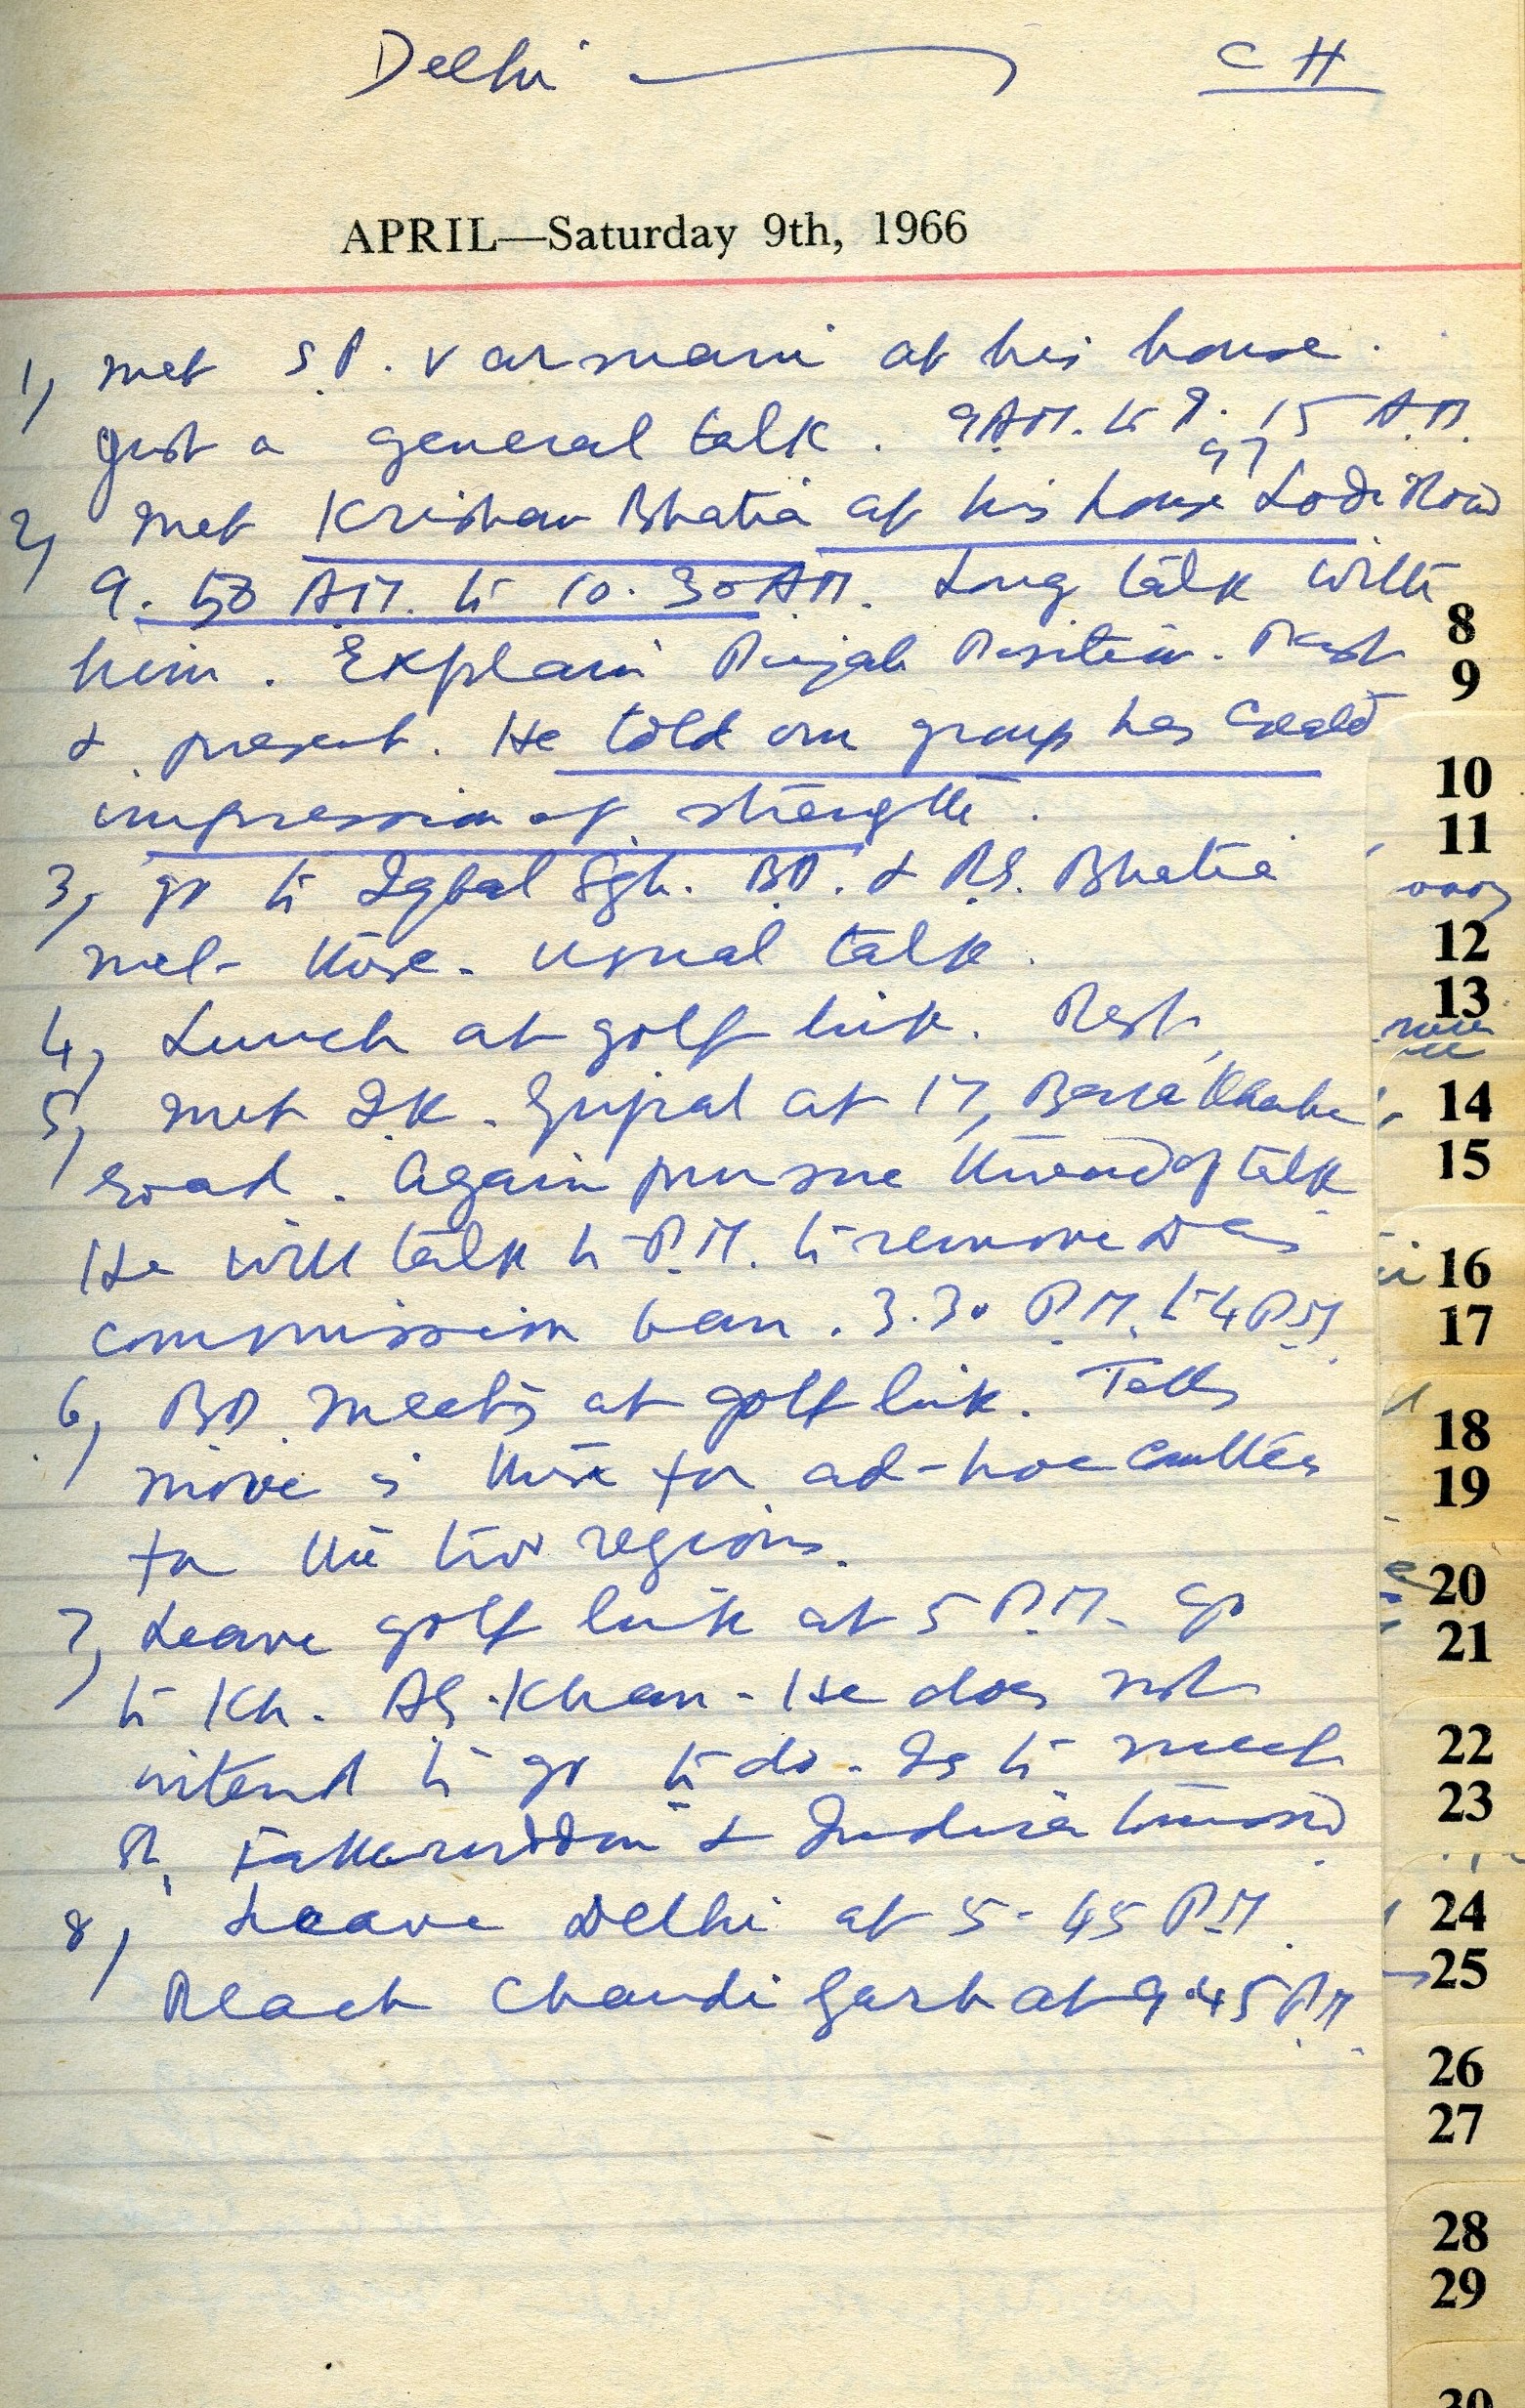 Delhi — CH
APRIL—Saturday 9th, 1966
1, met S.P. Varmani at his house.
Just a general talk. 9 A.M. to 9.15 A.M.
2, Met Krishan Bhatia at his house 57 Lodi Road
9. A.M. to 10.30 A.M. Long talk with
him. Explain Punjab Position. Past
& present. He told our group has created
impression of strength.
3, go to Iqbal Sgh. BD. & RS. Bhatia
met there. usual talk.
4, Lunch at golf link. Rest.
5, Met I.K. Gujral at 17, Bara Khaba
road. Again pursue thread of talk
He will talk to P.M. to remove Das
commission ban. 3.30 P.M. to 4 P.M.
6, BD meets at golf link. Tells
move is there for ad-hoc cmttees
for the two regions.
7, Leave golf link at 5 P.M. go
to Kh. AG. Khan. He does not
intend to go to do. Is to meet
Fakharuddin & Indira
8, Leave Delhi at 5-45 P.M.
Reach Chandigarh at 9.45 P.M.
8
9
10
11
12
13
14
15
16
17
18
19
20
21
22
23
24
25
26
27
28
29
30